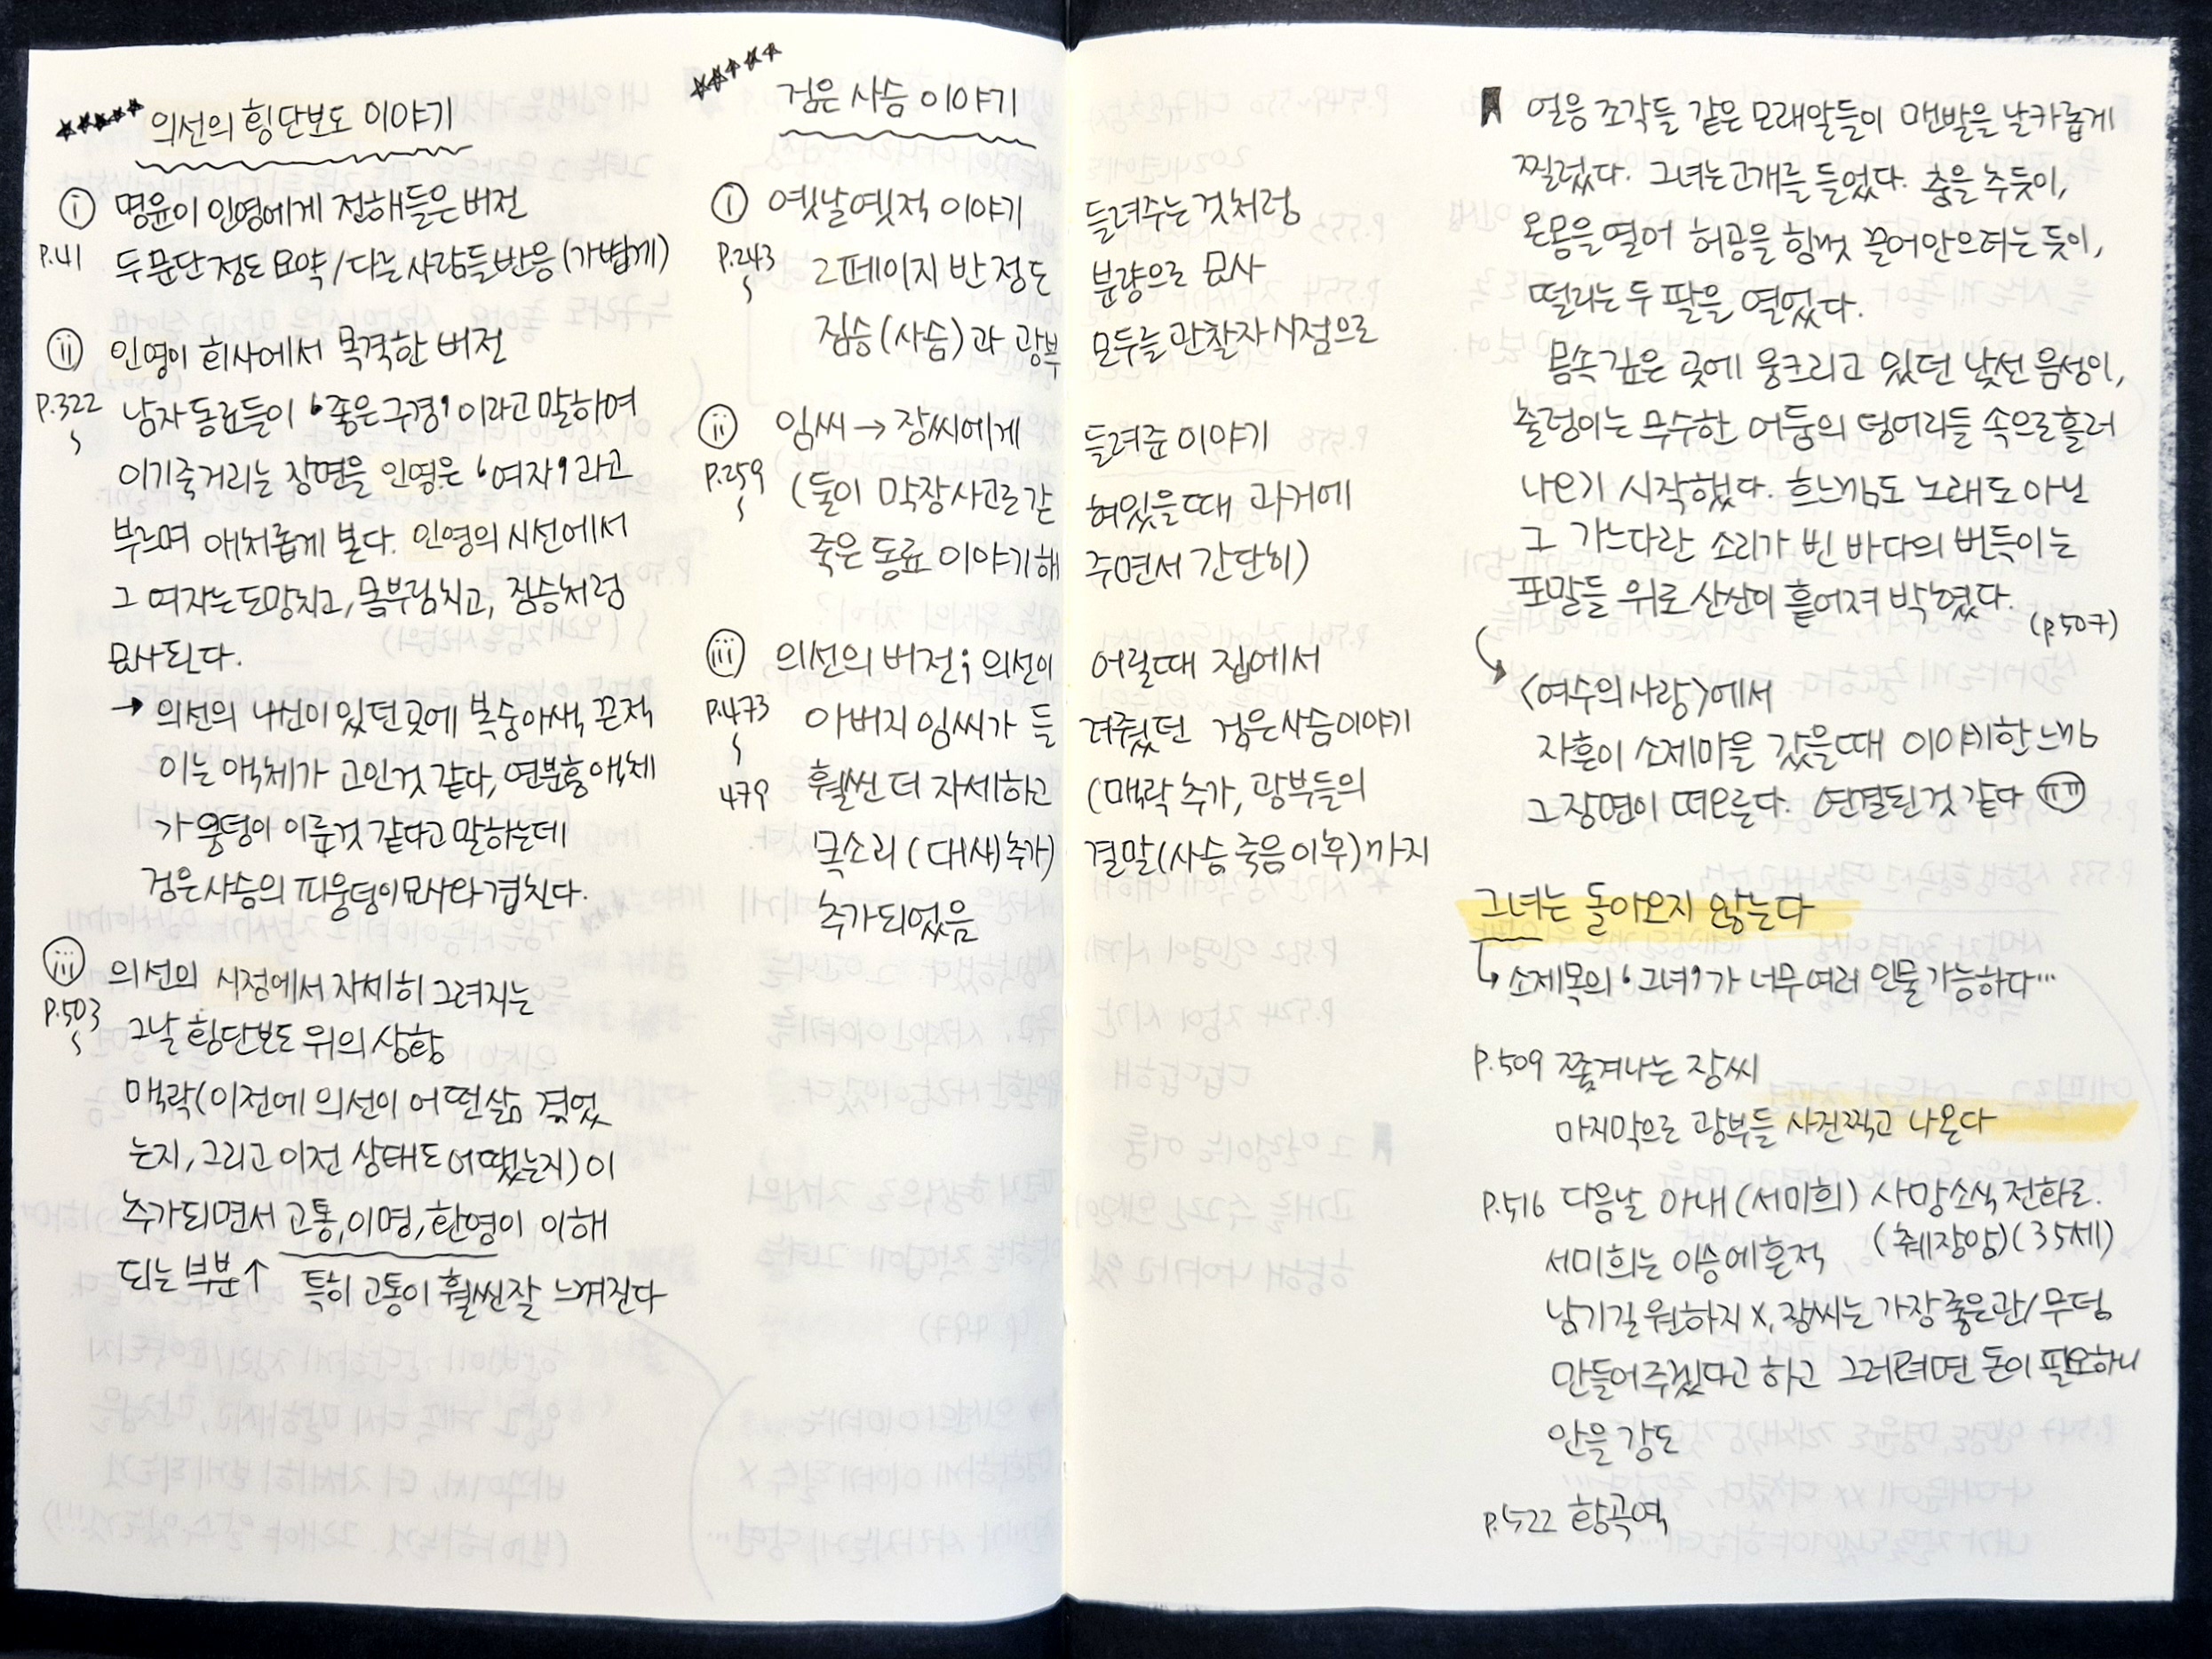 ★★★★★ 의선의 횡단보도 이야기
ⓘ 명윤이 인영에게 전해들은 버전
P.41 두 문단 정도 요약/다른 사람들 반응(가볍게)
ⅱ 인영이 회사에서 목격한 버전
P.322 남자 동료들이 '좋은 구경'이라고 말하며
이기죽거리는 장면을 인영은 '여자'라고
부르며 애처롭게 본다. 인영의 시선에서
그 여자는 도망치고, 몸부림치고, 짐승처럼
묘사된다.
→ 의선의 나신이 있던 곳에 복숭아색, 끈적
이는 액체가 고인것 같다, 연분홍 액체
가 웅덩이 이룬것 같다고 말하는데
검은사슴의 피웅덩이 묘사와 겹친다.
ⅲ 의선의 시점에서 자세히 그려지는
P.503 그날 횡단보도 위의 상황
맥락(이전에 의선이 어떤 삶 겪었
는지, 그리고 이전 상태도 어땠는지)이
추가되면서 고통, 이명, 환영이 이해
되는 부분↑ 특히 고통이 훨씬 잘 느껴진다
★★★★★
검은 사슴 이야기
ⓘ 옛날옛적 이야기 들려주는 것처럼
P.243 2페이지 반 정도 분량으로 묘사
짐승(사슴)과 광부 모두를 관찰자시점으로
ⅱ 임씨→장씨에게 들려준 이야기
P.259 (둘이 막장사고로 갇혀있을때 과거에
죽은 동료 이야기해주면서 간단히)
ⅲ 의선의 버전; 의선이 어릴때 집에서
P.473 아버지 임씨가 들려줬던 검은사슴이야기
479 훨씬 더 자세하고 (맥락 추가, 광부들의
목소리(대사)추가) 결말(사슴 죽음이후)까지
추가되었음
얼음 조각들 같은 모래알들이 맨발을 날카롭게
찔렀다. 그녀는 고개를 들었다. 춤을 추듯이,
온몸을 열어 허공을 힘껏 끌어안으려는 듯이,
떨리는 두 팔을 열었다.
몸속 깊은 곳에 웅크리고 있던 낯선 음성이,
출렁이는 무수한 어둠의 덩어리들 속으로 흘러
나오기 시작했다. 흐느낌도 노래도 아닌
그 가느다란 소리가 빈 바다의 번득이는
포말들 위로 산산이 흩어져 박혔다.
(p.507)
<여수의 사랑>에서
자흔이 소제마을 갔을때 이야기한 느낌
그 장면이 떠오른다. 연결된것 같다 ㅠㅠ
그녀는 돌아오지 않는다
↳ 소제목의 '그녀'가 너무 여러 인물 가능하다…
P.509 쫓겨나는 장씨
마지막으로 광부들 사진찍고 나온다
P.516 다음날 아내(서미희) 사망소식 전화로.
(췌장암)(35세)
서미희는 이승에 흔적
남기길 원하지 X, 장씨는 가장 좋은 관/무덤
만들어주겠다고 하고 그러려면 돈이 필요하니
안을 강도
P.522 함곡역